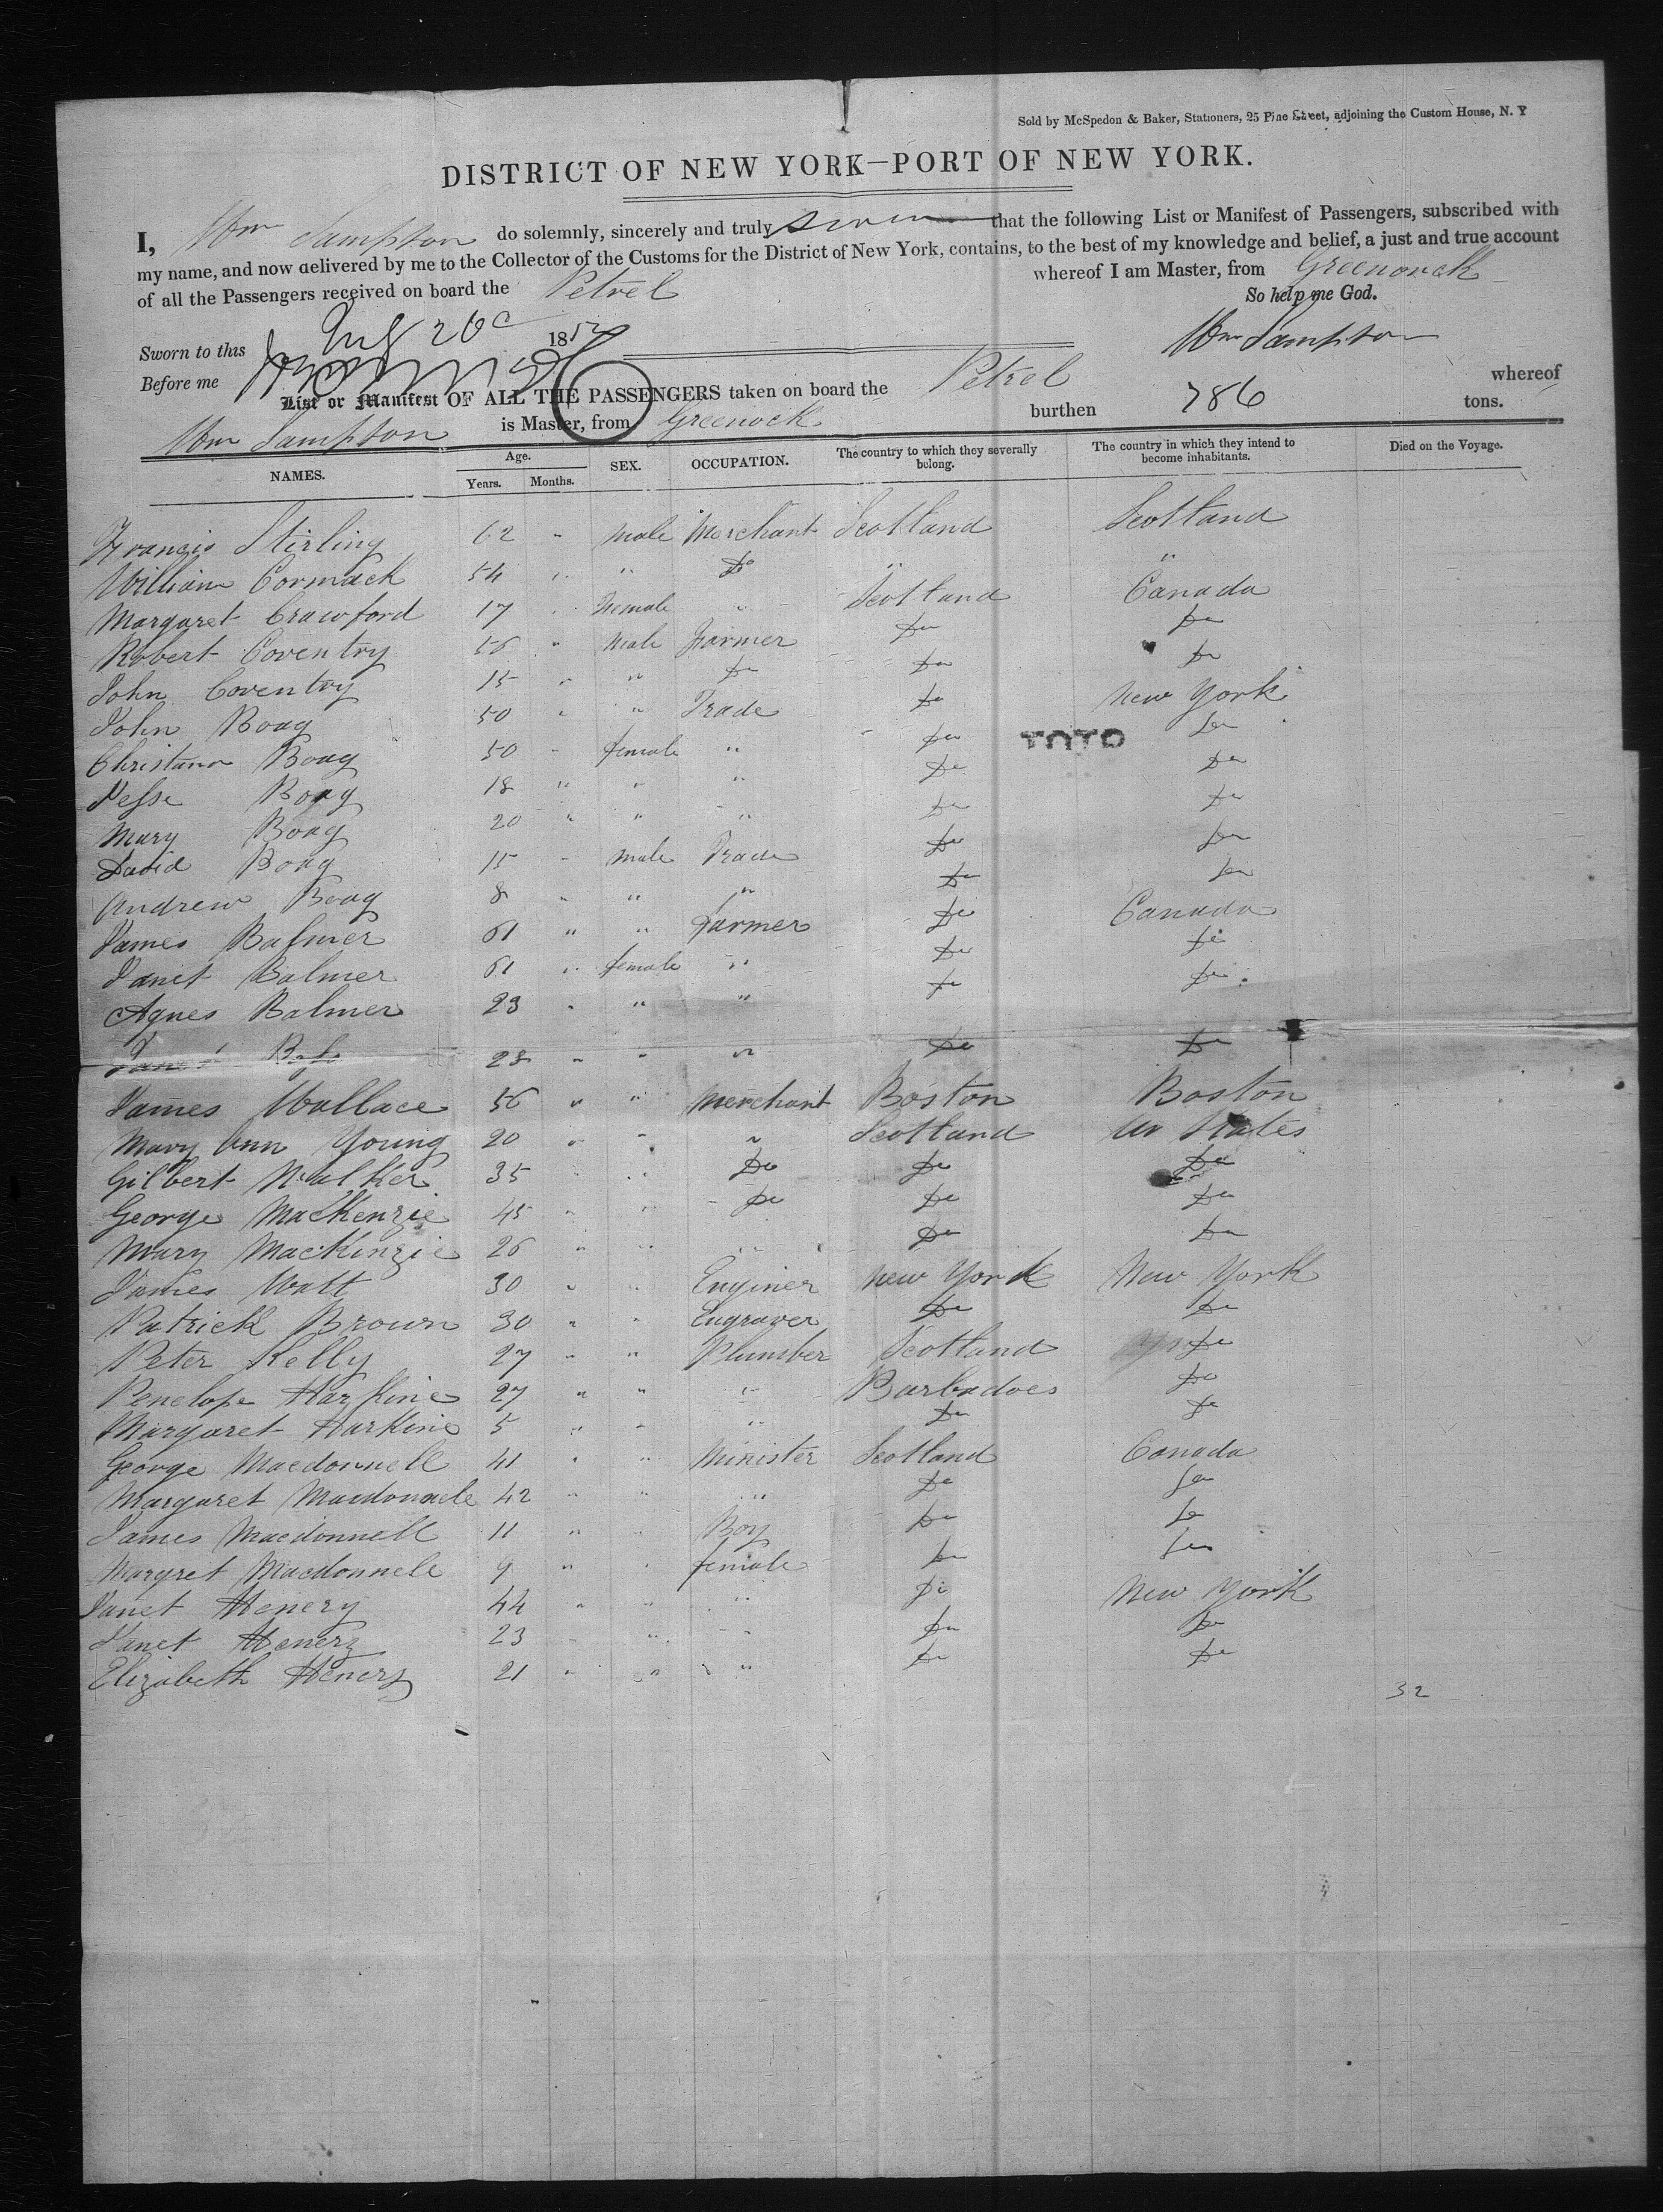 Sold by McSpedon & Baker, Stationers, 25 Pine Street, adjoining the Custom House, N. Y
DISTRICT OF NEW YORK—PORT OF NEW YORK.
I, Wm Sampson do solemnly, sincerely and truly swear that the following List or Manifest of Passengers, subscribed with
my name, and now delivered by me to the Collector of the Customs for the District of New York, contains, to the best of my knowledge and belief, a just and true account
of all the Passengers received on board the Petrel whereof I am Master, from Greenouck
So help me God.
Sworn to this 26 185 Wm Sampson
Before me
List or Manifest OF ALL THE PASSENGERS taken on board the Petrel whereof
Wm Sampson is Master, from Greenock burthen 786 tons.
NAMES. Age. Years. Months. SEX. OCCUPATION. The country to which they severally belong. The country in which they intend to become inhabitants. Died on the Voyage.
Francis Stirling 62 " male Merchant Scotland Scotland
William Cormack 54 " " Do " "
Margaret Crawford 17 " Female " Scotland Canada
Robert Coventry 56 " Male Farmer Do Do
John Coventry 15 " " Do Do Do
John Boag 50 " " Trade Do New York
Christana Boag 50 " female " Do Do
Jesse Boag 18 " " " Do Do
Mary Boag 20 " " " Do Do
David Boag 15 " male Trade Do Do
Andrew Boag 8 " " " Do Do
James Balmer 61 " " Farmer Do Canada
Janet Balmer 61 " female " Do Do
Agnes Balmer 23 " " " Do Do
28 " " " Do Do
James Wallace 56 " " Merchant Boston Boston
Mary Ann Young 20 " " " Scotland Un States
Gilbert Walker 35 " " Do Do Do
George MacKenzie 45 " " Do Do Do
Mary MacKinzie 26 " " " Do Do
James Watt 30 " " Enginer New York New York
Patrick Brown 30 " " Engraver Do Do
Peter Kelly 27 " " Plumber Scotland Do
Penelope Harkine 27 " " " Barbadoes Do
Margaret Harkine 5 " " " Do Do
George Macdonnell 41 " " Minister Scotland Canada
Margaret Macdonnele 42 " " " Do Do
James Macdonnell 11 " " Boy Do Do
Margret Macdonnele 9 " " female Do Do
Janet Henery 44 " " " Do New York
Janet Henery 23 " " " Do Do
Elizabeth Henery 21 " " " Do Do
32